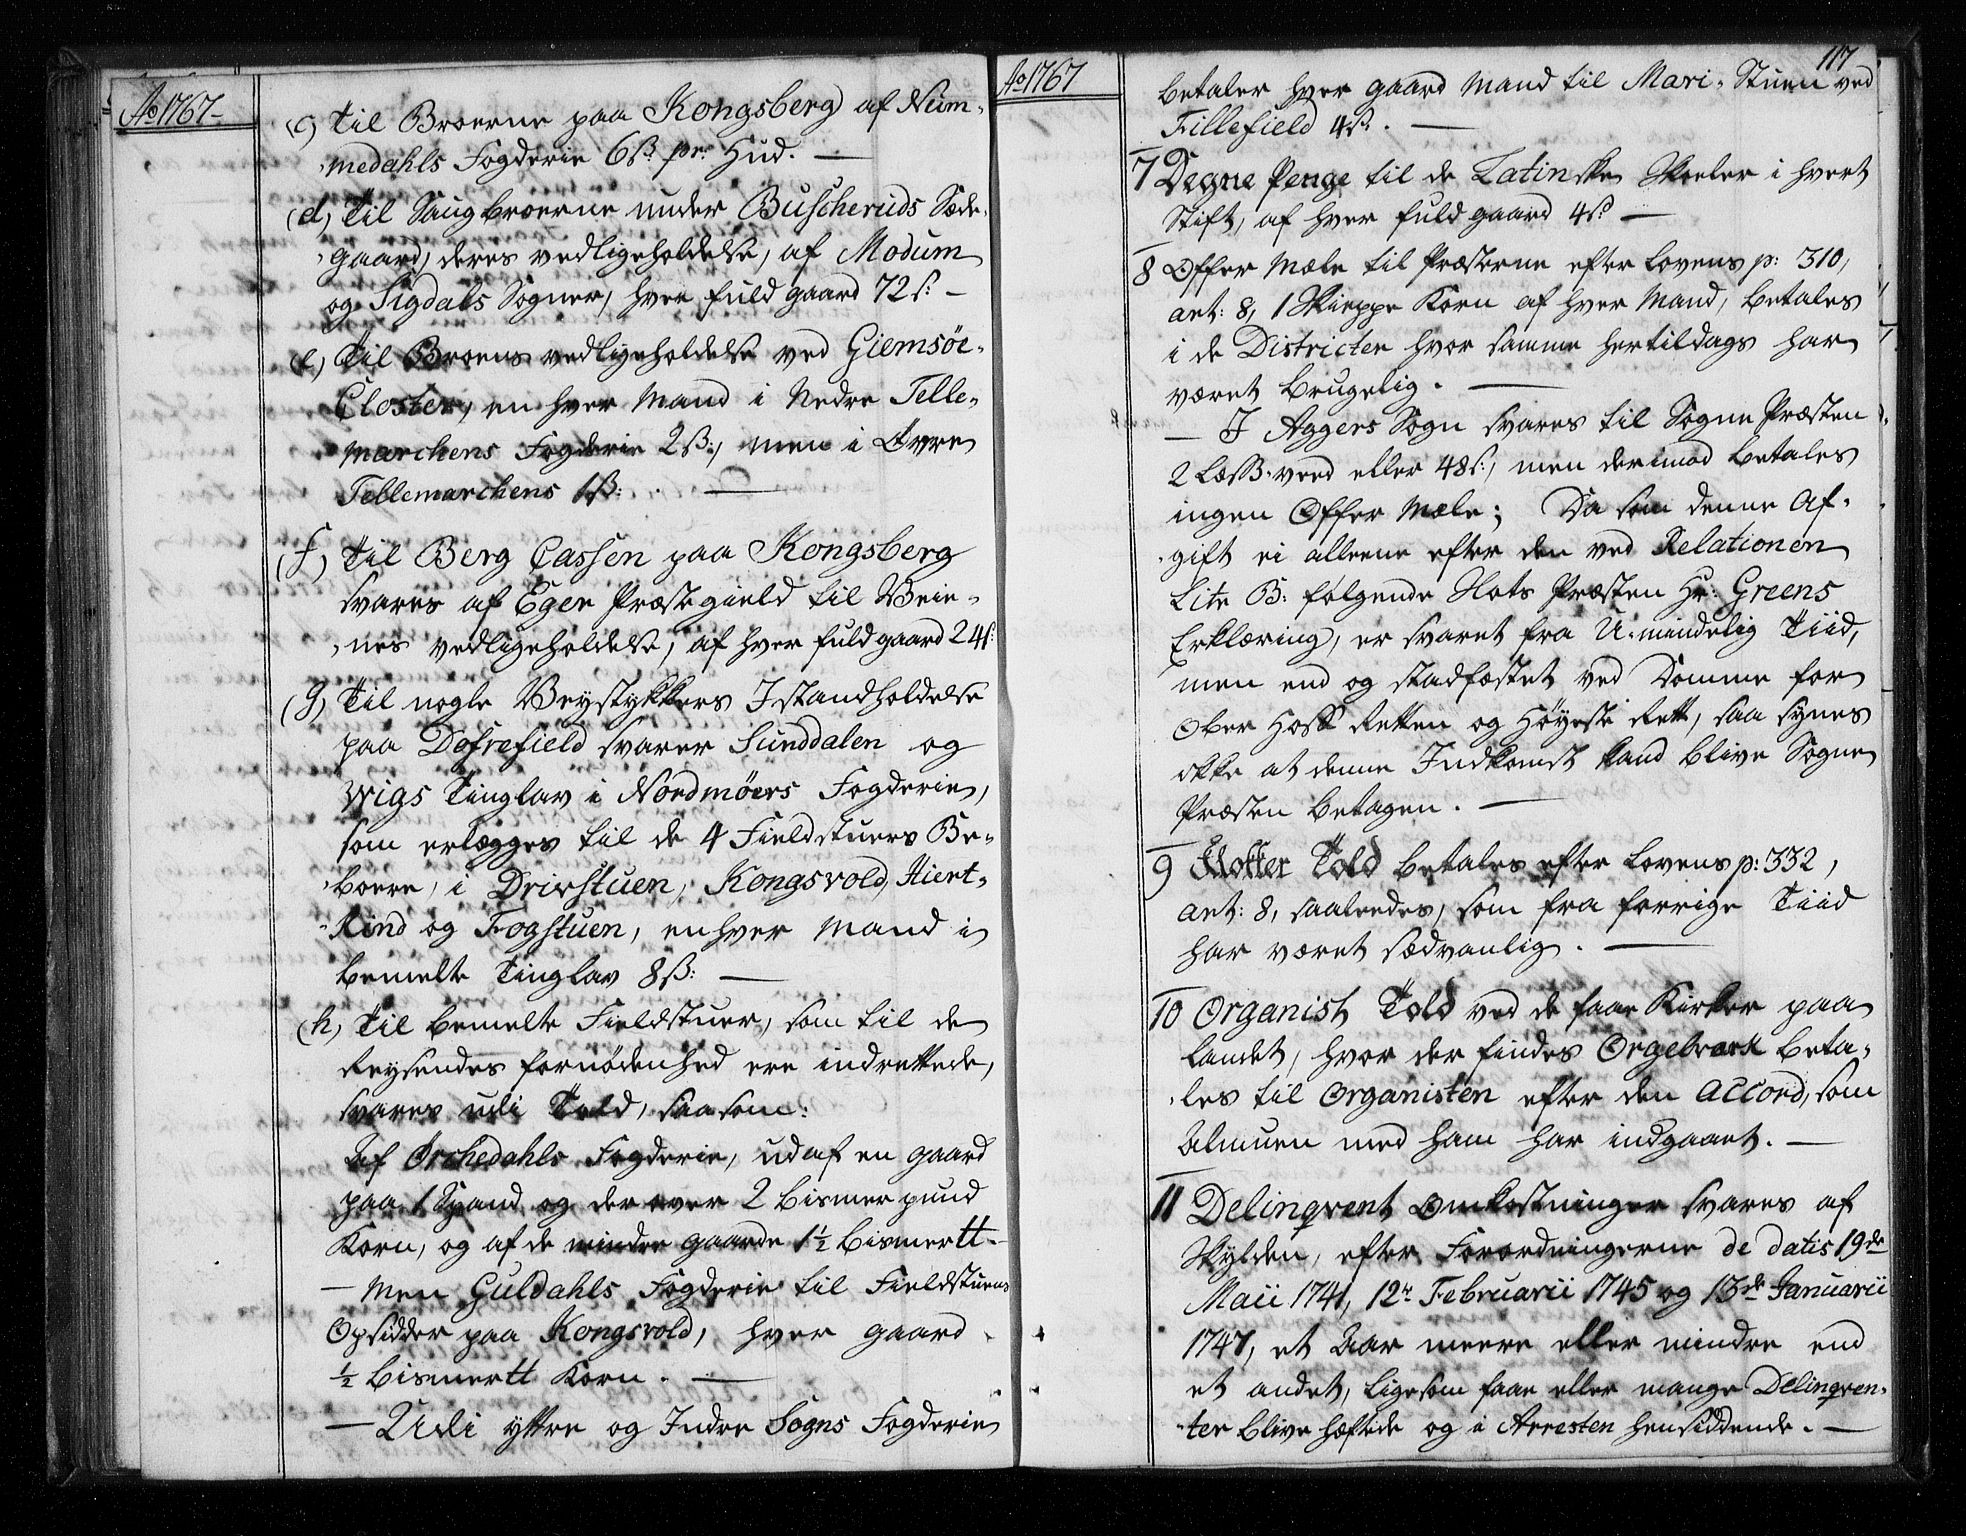 Ao 1767-
(c) Til Broerne paa Kongsberg af Num-
medahls Fogderie 6 ß pr: Hud. —
(d) Til Saugbroerne under Buscheruds Sæde-
gaard, deres vedligeholdelse, af Modum
og Sigdals Sogner, hver fuld gaard 72 ß: —
(e) Til Broens vedligeholdelse ved Giemsøe-
Closter, en hver Mand i Nedre Telle-
marchens Fogderie 2 ß:, men i Øvre
Tellemarchens 1 ß: —
(f) Til Berg Cassen paa Kongsberg
svares af Eger Præstegield til Veie-
nes vedligeholdelse, af hver fuld gaard 24 ß:
(g) Til nogle Veystykkers Istandholdelse
paa Dofrefield svarer Sunddalen og
Wigs Tinglav i Nordmøers Fogderie,
som erlægges til de 4 Fieldstuers Be-
boere, i Drivstuen, Kongsvold, Hiert-
Kind og Fogstuen, enhver Mand i
bemelte Tinglav 8 ß: —
(h) Til bemelte Fieldstuer, som til de
Reysendes fornødenhed ere indrettede,
svares udi Told, saasom:
Af Orchedahls Fogderie, ud af en gaard
paa 1 Spand og derover 2 Bismer pund
Korn, og af de mindre gaarde 1½ Bismertt.
— Men Guldahls Fogderie til Fieldstuens
Opsidder paa Kongsvold, hver gaard
½ Bismertt Korn. —
— Udi yttre og Indre Sogns Fogderie
Ao 1767
117
betaler hver gaard Mand til Mari-Stuen ved
Fillefield 4 ß. —
7 Degne Penge til de Latinske Skoler i hvert
Stift, af hver fuld gaard 4 ß —
8 Offer Mæle til Præsterne efter Lovens p: 310,
art: 8, 1 Skieppe Korn af hver Mand, betales
i de Districter hvor samme hertildags har
været brugelig. —
— I Aggers Sogn svares til Sogne Præsten
2 Læss veed eller 48 ß:, men derimod betales
ingen Offer Mæle; Da som denne Af-
gift ei alleene efter den ved Relationen
Litr B: følgende Slots Præsten Hr: Greens
Erklæring, er svaret fra U-mindelig Tiid,
men end og stadfæstet ved Domme for
Ober Hoff Retten og Høyeste Rett, saa synes
ikke at denne Indkomst kand blive Sogne
Præsten betagen. —
9 Klokker Told betales efter Lovens p: 332,
art: 8, saaleedes, som fra forrige Tiid
har været sædvanlig. —
10 Organist Told ved de faae Kirker paa
Landet, hvor der findes Orgelværk beta-
les til Organisten efter den Accord, som
Almuen med ham har indgaaet. —
11 Delinqvent Omkostninger svares af
Skylden, efter Forordningerne de datis 19de
Maii 1741, 12te Februarii 1745 og 13de Januarii
1747, et Aar meere eller mindre end
et andet, ligesom faae eller mange Delinqven-
ter blive hæftede og i Arresten hensiddende. —